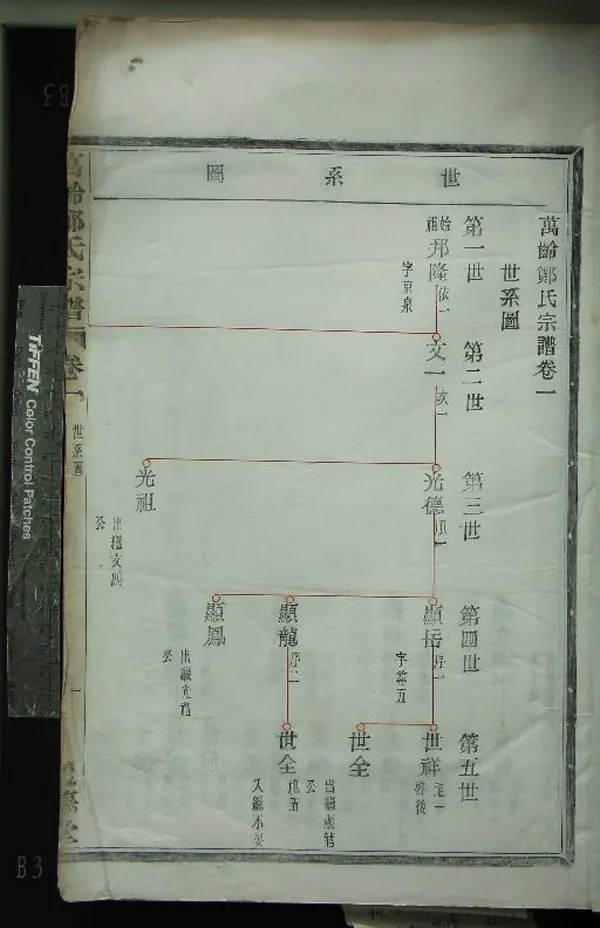 萬齡鄭氏宗譜卷一
世系圖
世系圖
第一世
始祖
邦隆
依一
字東泉
第二世
文一
亥一
第三世
光德
順一
光祖
出繼文四公
第四世
顯岳
序一
字等五
顯龍
序二
顯鳳
出繼光遠公
第五世
世祥
琨一
世全
出繼顯龍公
世全
琨五
入繼不妥
萬齡鄭氏宗譜
卷一
世系圖
一
TIFFEN Color Control Patches
B3
B3